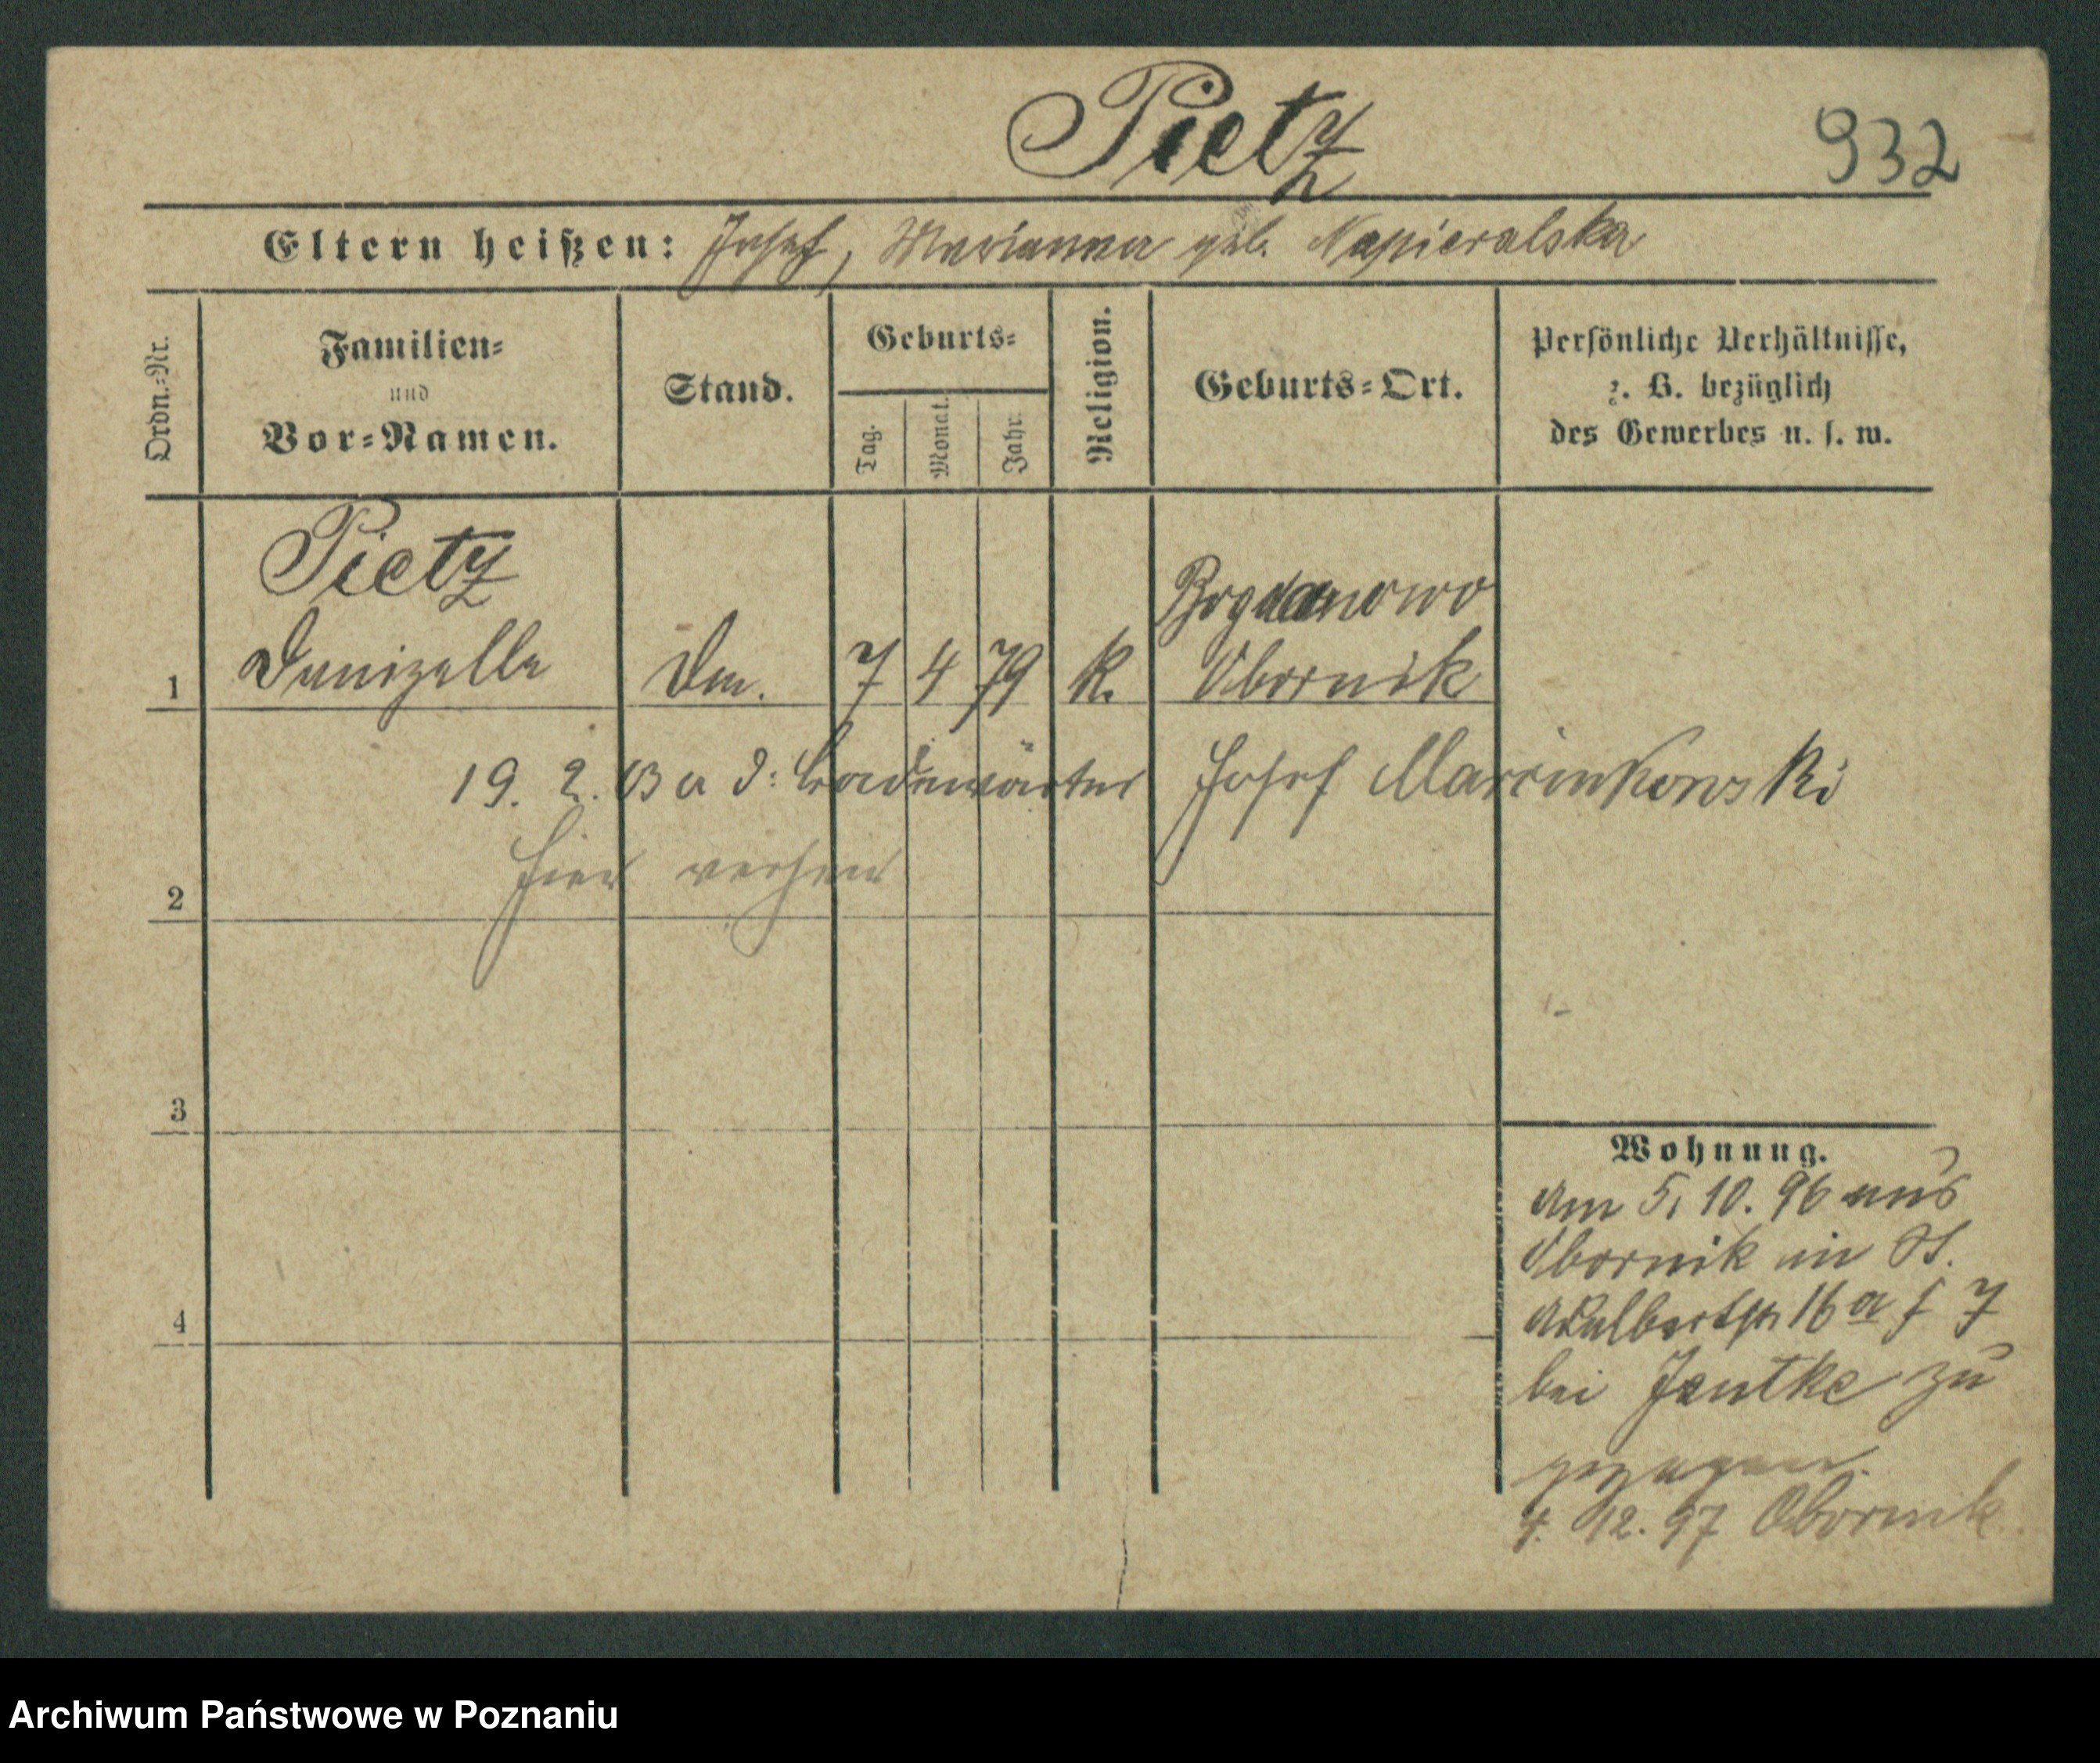 Pietz
932
Eltern heißen: Josef, Marianna geb. Napieralska
Ordn.-Nr.
Familien-
und
Vor-Namen.
Stand.
Geburts-
Tag.
Monat.
Jahr.
Religion.
Geburts-Ort.
Persönliche Verhältnisse,
z. B. bezüglich
des Gewerbes u. s. w.
Pietz
Bogdanowo
1
7 4 79 K. Obornik
19. 2. 03 a d: Josef Marcinkowski
hier
2
3
4
Wohnung.
Am 5. 10. 96 aus
Obornik in St.
Adalbertstr. 16 a
bei Jentke zu
gezogen.
4. 12. 97 Obornik
Archiwum Państwowe w Poznaniu